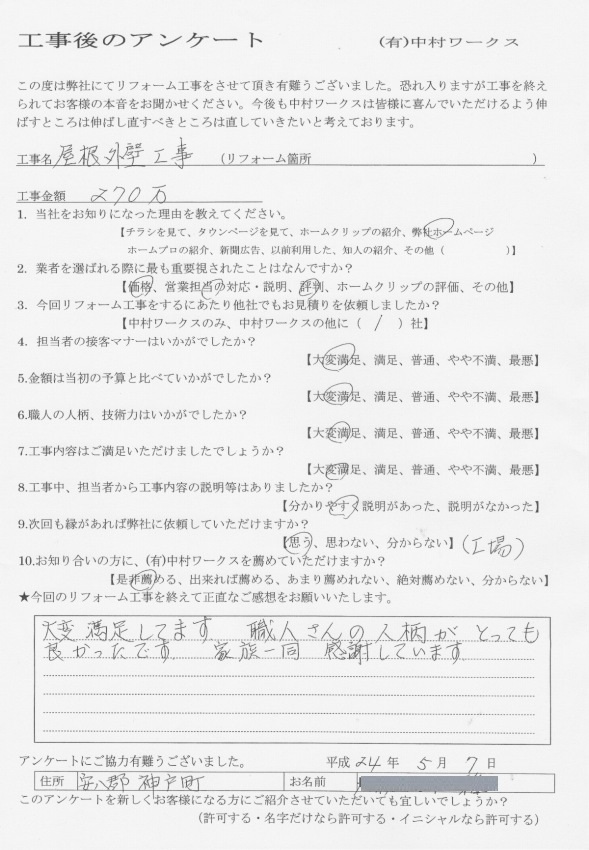 工事後のアンケート (有)中村ワークス
この度は弊社にてリフォーム工事をさせて頂き有難うございました。恐れ入りますが工事を終え
られてお客様の本音をお聞かせください。今後も中村ワークスは皆様に喜んでいただけるよう伸
ばすところは伸ばし直すべきところは直していきたいと考えております。
工事名 屋根外壁工事 (リフォーム箇所 )
工事金額 270万
1. 当社をお知りになった理由を教えてください。
【チラシを見て、タウンページを見て、ホームクリップの紹介、弊社ホームページ
ホームプロの紹介、新聞広告、以前利用した、知人の紹介、その他( )】
2. 業者を選ばれる際に最も重要視されたことはなんですか?
【価格、営業担当の対応・説明、評判、ホームクリップの評価、その他】
3. 今回リフォーム工事をするにあたり他社でもお見積りを依頼しましたか?
【中村ワークスのみ、中村ワークスの他に( / )社】
4. 担当者の接客マナーはいかがでしたか?
【大変満足、満足、普通、やや不満、最悪】
5.金額は当初の予算と比べていかがでしたか?
【大変満足、満足、普通、やや不満、最悪】
6.職人の人柄、技術力はいかがでしたか?
【大変満足、満足、普通、やや不満、最悪】
7.工事内容はご満足いただけましたでしょうか?
【大変満足、満足、普通、やや不満、最悪】
8.工事中、担当者から工事内容の説明等はありましたか?
【分かりやすく説明があった、説明がなかった】
9.次回も縁があれば弊社に依頼していただけますか?
【思う、思わない、分からない】(工場)
10.お知り合いの方に、(有)中村ワークスを薦めていただけますか?
【是非薦める、出来れば薦める、あまり薦めれない、絶対薦めない、分からない】
★今回のリフォーム工事を終えて正直なご感想をお願いいたします。
大変満足してます。 職人さんの人柄が とっても
良かったです。 家族一同 感謝しています。
アンケートにご協力有難うございました。 平成 24 年 5 月 7 日
住所 安八郡神戸町 お名前
このアンケートを新しくお客様になる方にご紹介させていただいても宜しいでしょうか?
(許可する・名字だけなら許可する・イニシャルなら許可する)